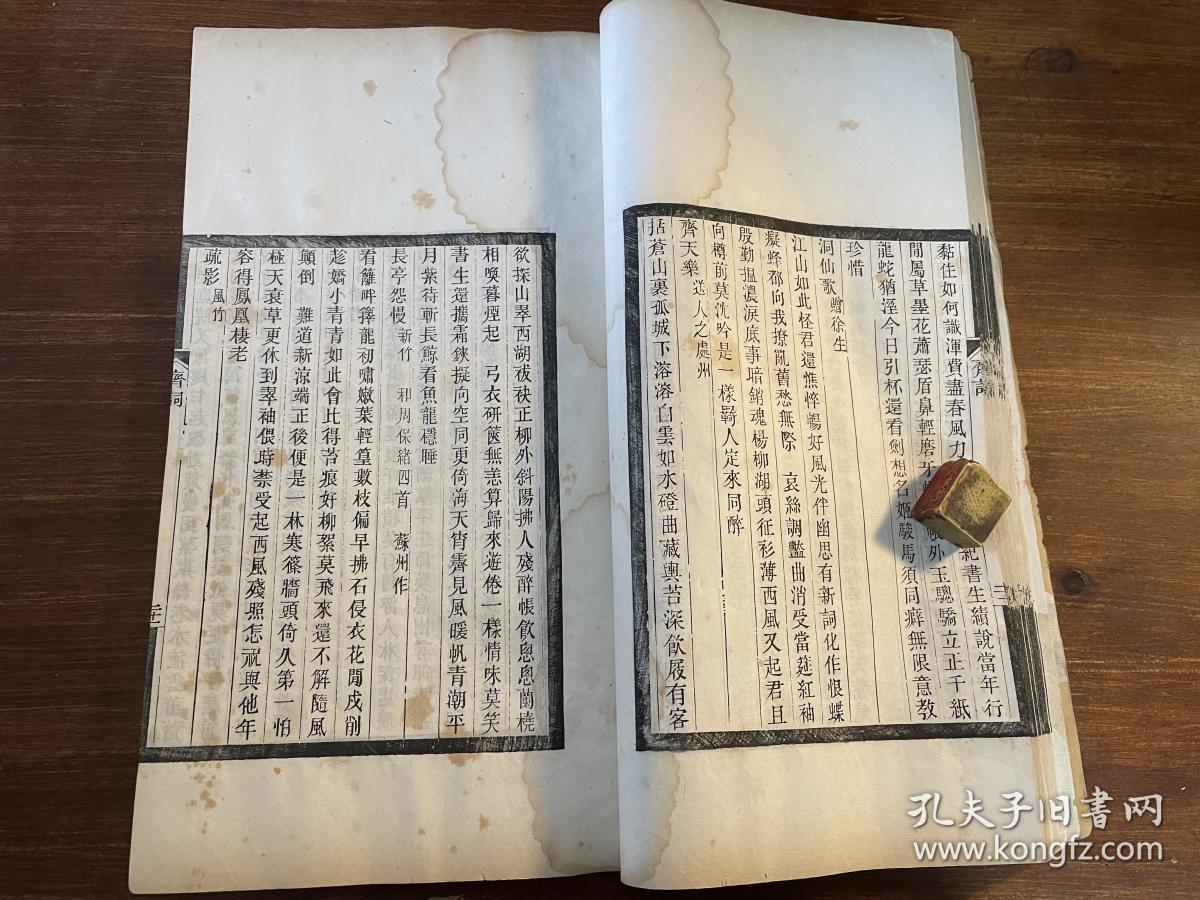 黏住如何諴渾費盡春風力
紀書生績說當年行
閒屬草墨花蕭瑟眉鼻輕磨牙
外玉驄驕立正千紙
龍蛇猶溼今日引杯還看劍想名姬駿馬須同癖無限意教
珍惜
洞仙歌 贈徐生
江山如此怪君還憔悴暢好風光伴幽思有新詞化作恨蝶
癡蜂都向我撩亂舊愁無際 哀絲調豔曲消受當筵紅袖
殷勤搵濃淚底事暗銷魂楊柳湖頭征衫薄西風又起君且
向樽前莫沈吟是一樣羇人定來同醉
齊天樂 送人之處州
括蒼山裏孤城下溶溶白雲如水磴曲藏輿苔深飲屐有客
欲探山翠西湖祓袂正柳外斜陽拂人殘醉帳飲悤悤蘭橈
相喚暮煙起 弓衣研篋無恙算歸來遊倦一樣情味莫笑
書生還攜霜鋏擬向空同更倚海天脊霽見風暖帆青潮平
月紫待斬長鯨看魚龍穩睡
長亭怨慢 新竹 和周保緒四首 蘇州作
看籬畔籜龍初嘯嫩葉輕篁數枝偏早拂石侵衣花閒戍削
趁嬌小青青如此會比得苔痕好柳絮莫飛來還不解隨風
顛倒 難道新涼端正後便是一林寒篠牆頭倚久第一怕
極天衰草更休到翠袖偎時禁受起西風殘照怎祝與他年
容得鳳凰棲老
疏影 風竹
齊詞
二十二
孔夫子旧書网
www.kongfz.com